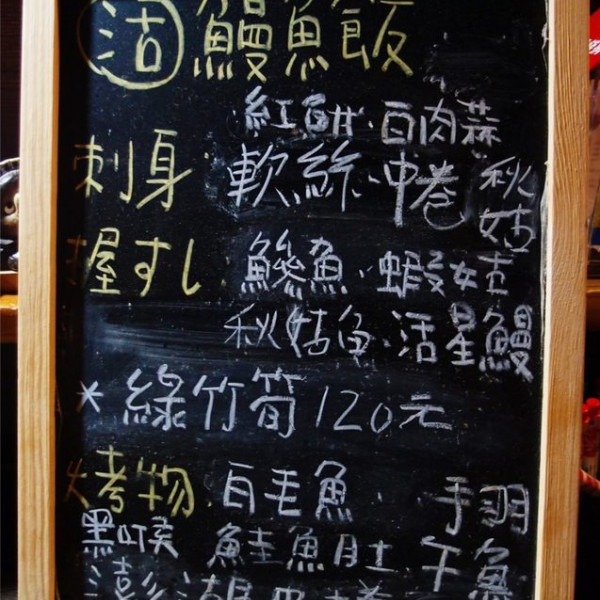 活 鰻魚飯
紅甘·白肉 蒜
刺身·軟絲·中卷 秋姑
握すし 鰺魚·蝦姑
秋姑魚·活星鰻
*綠竹筍120元
烤物 白毛魚· 手羽
黑喉 鮭魚肚 午魚
澎湖